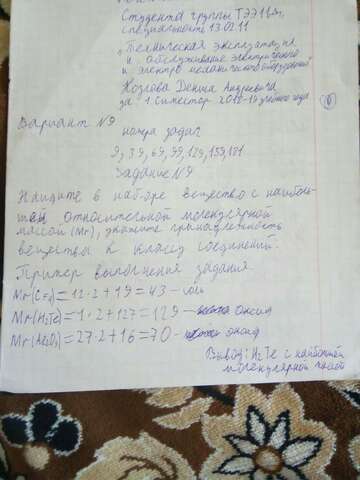 Студента группы ТЭЭ11
специальность 13.02.11
„Техническая эксплуатация
и обслуживание электрического
и электромеханического оборудования
Козлова Дениса Андреевича
за 1 семестр 2018-19 учебного года
Вариант №9
номера задач
9, 39, 69, 99, 129, 159, 181
Задание №9
Найдите в наборе вещество с наиболь-
шей относительной молекулярной
массой (Mr), укажите принадлежность
вещества к классу соединений.
Пример выполнения задания.
=12·2+19=43-
=1·2+127=129- оксид
=27·2+16=70- оксид
Вывод: H2Te с наибольшей
молекулярной массой